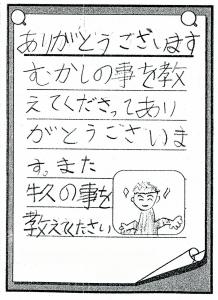 ありがとうございます
むかしの事を教
えてくださってあり
がとうございま
す。また
牛久の事を
教えてください